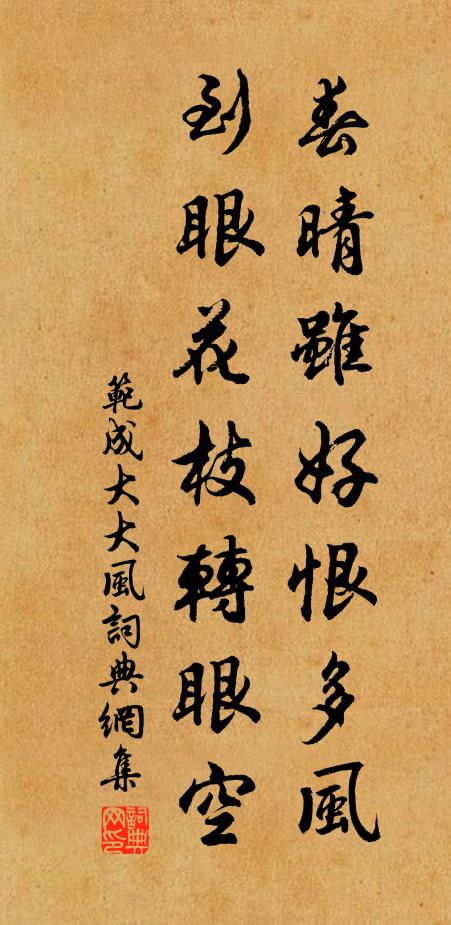 春晴雖好恨多風
到眼花枝轉眼空
範成大大風詞典網集
詞典网印